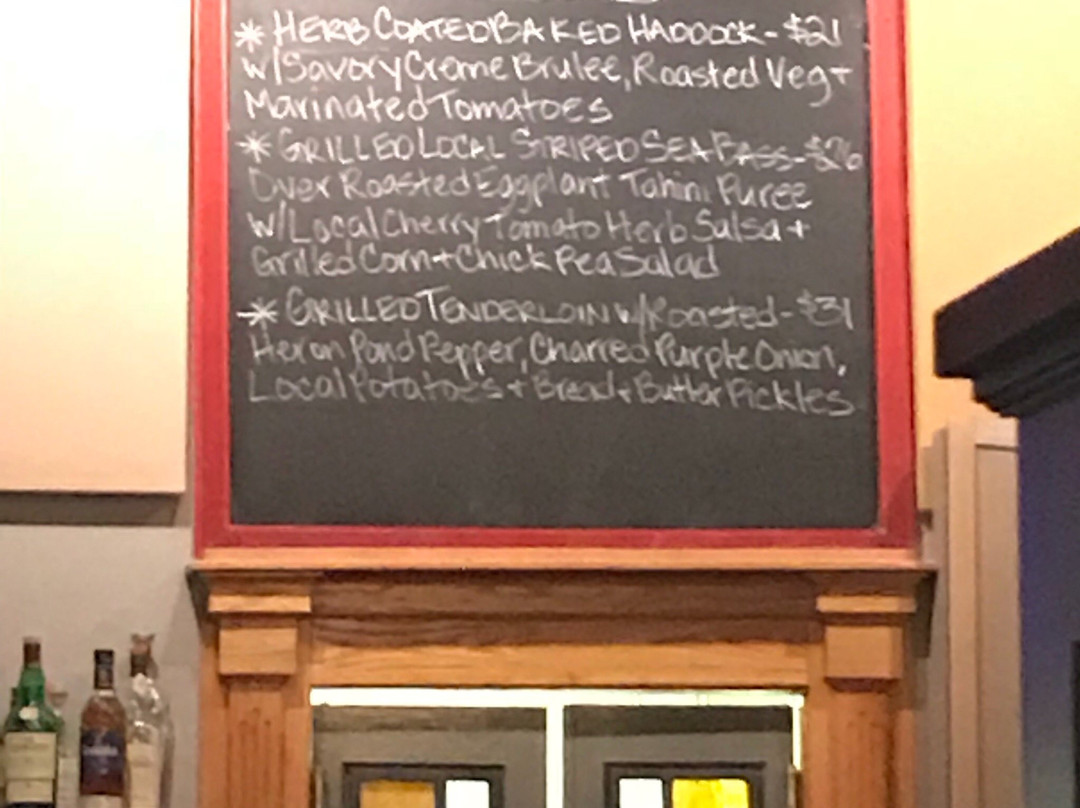 * HERB COATED BAKED HADDOCK - $21
w/Savory Creme Brulee, Roasted Veg +
Marinated Tomatoes
* GRILLED LOCAL STRIPED SEA BASS - $26
Over Roasted Eggplant Tahini Puree
w/Local Cherry Tomato Herb Salsa +
Grilled Corn + Chick Pea Salad
* GRILLED TENDERLOIN w/Roasted - $31
Heron Pond Pepper, Charred Purple Onion,
Local Potatoes + Bread + Butter Pickles